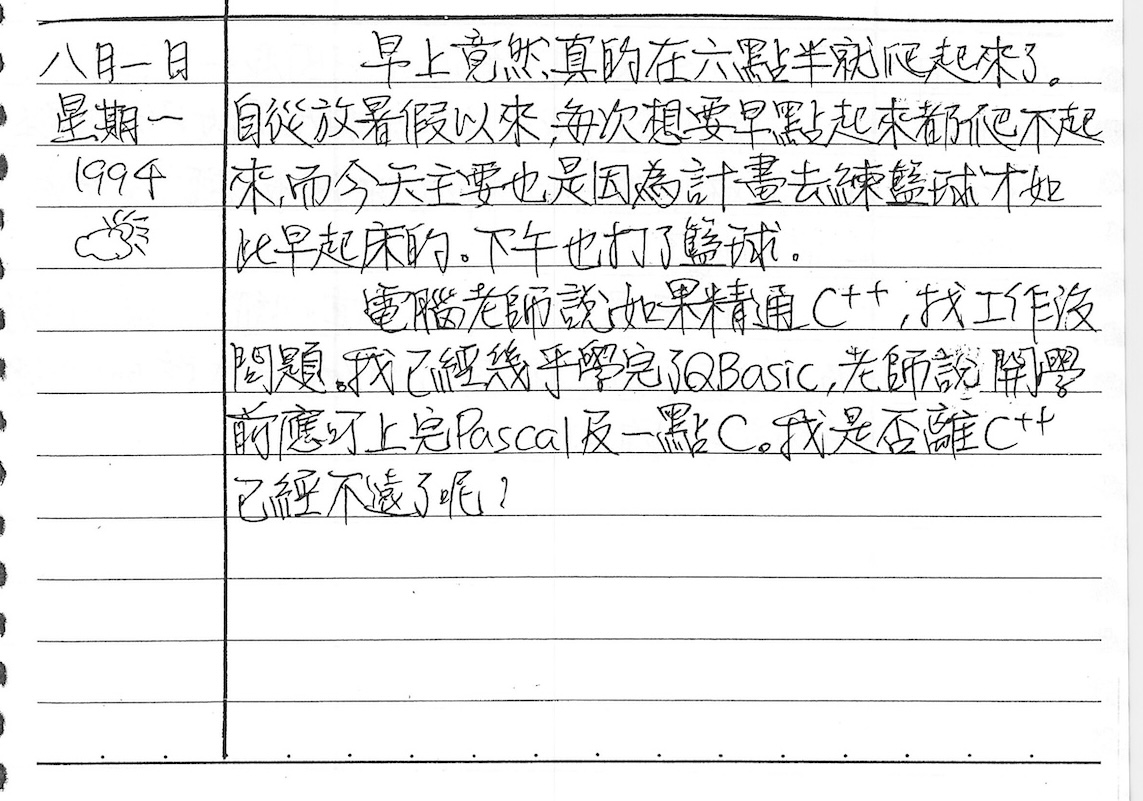 八月一日
星期一
1994
早上竟然真的在六點半就爬起來了。
自從放暑假以來,每次想要早點起來都爬不起
來,而今天主要也是因為計畫去練籃球才如
此早起床的。下午也打了籃球。
電腦老師說如果精通C++,找工作沒
問題。我已經幾乎學完了QBasic,老師說開學
前應可上完Pascal及一點C。我是否離C++
已經不遠了呢?